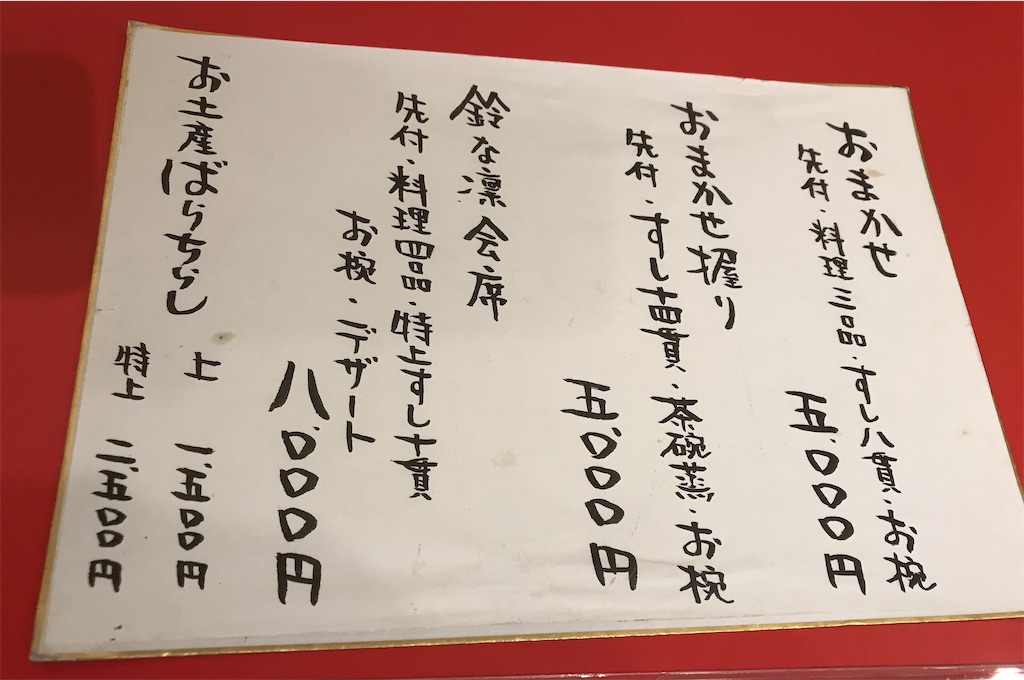 おまかせ
先付・料理三品・すし八貫・お椀
五、〇〇〇円
おまかせ握り
先付・すし十四貫・茶碗蒸・お椀
五、〇〇〇円
鈴な凛会席
先付・料理四品・特上すし十貫
お椀・デザート
八、〇〇〇円
お土産ばらちらし
上 一、五〇〇円
特上 二、五〇〇円